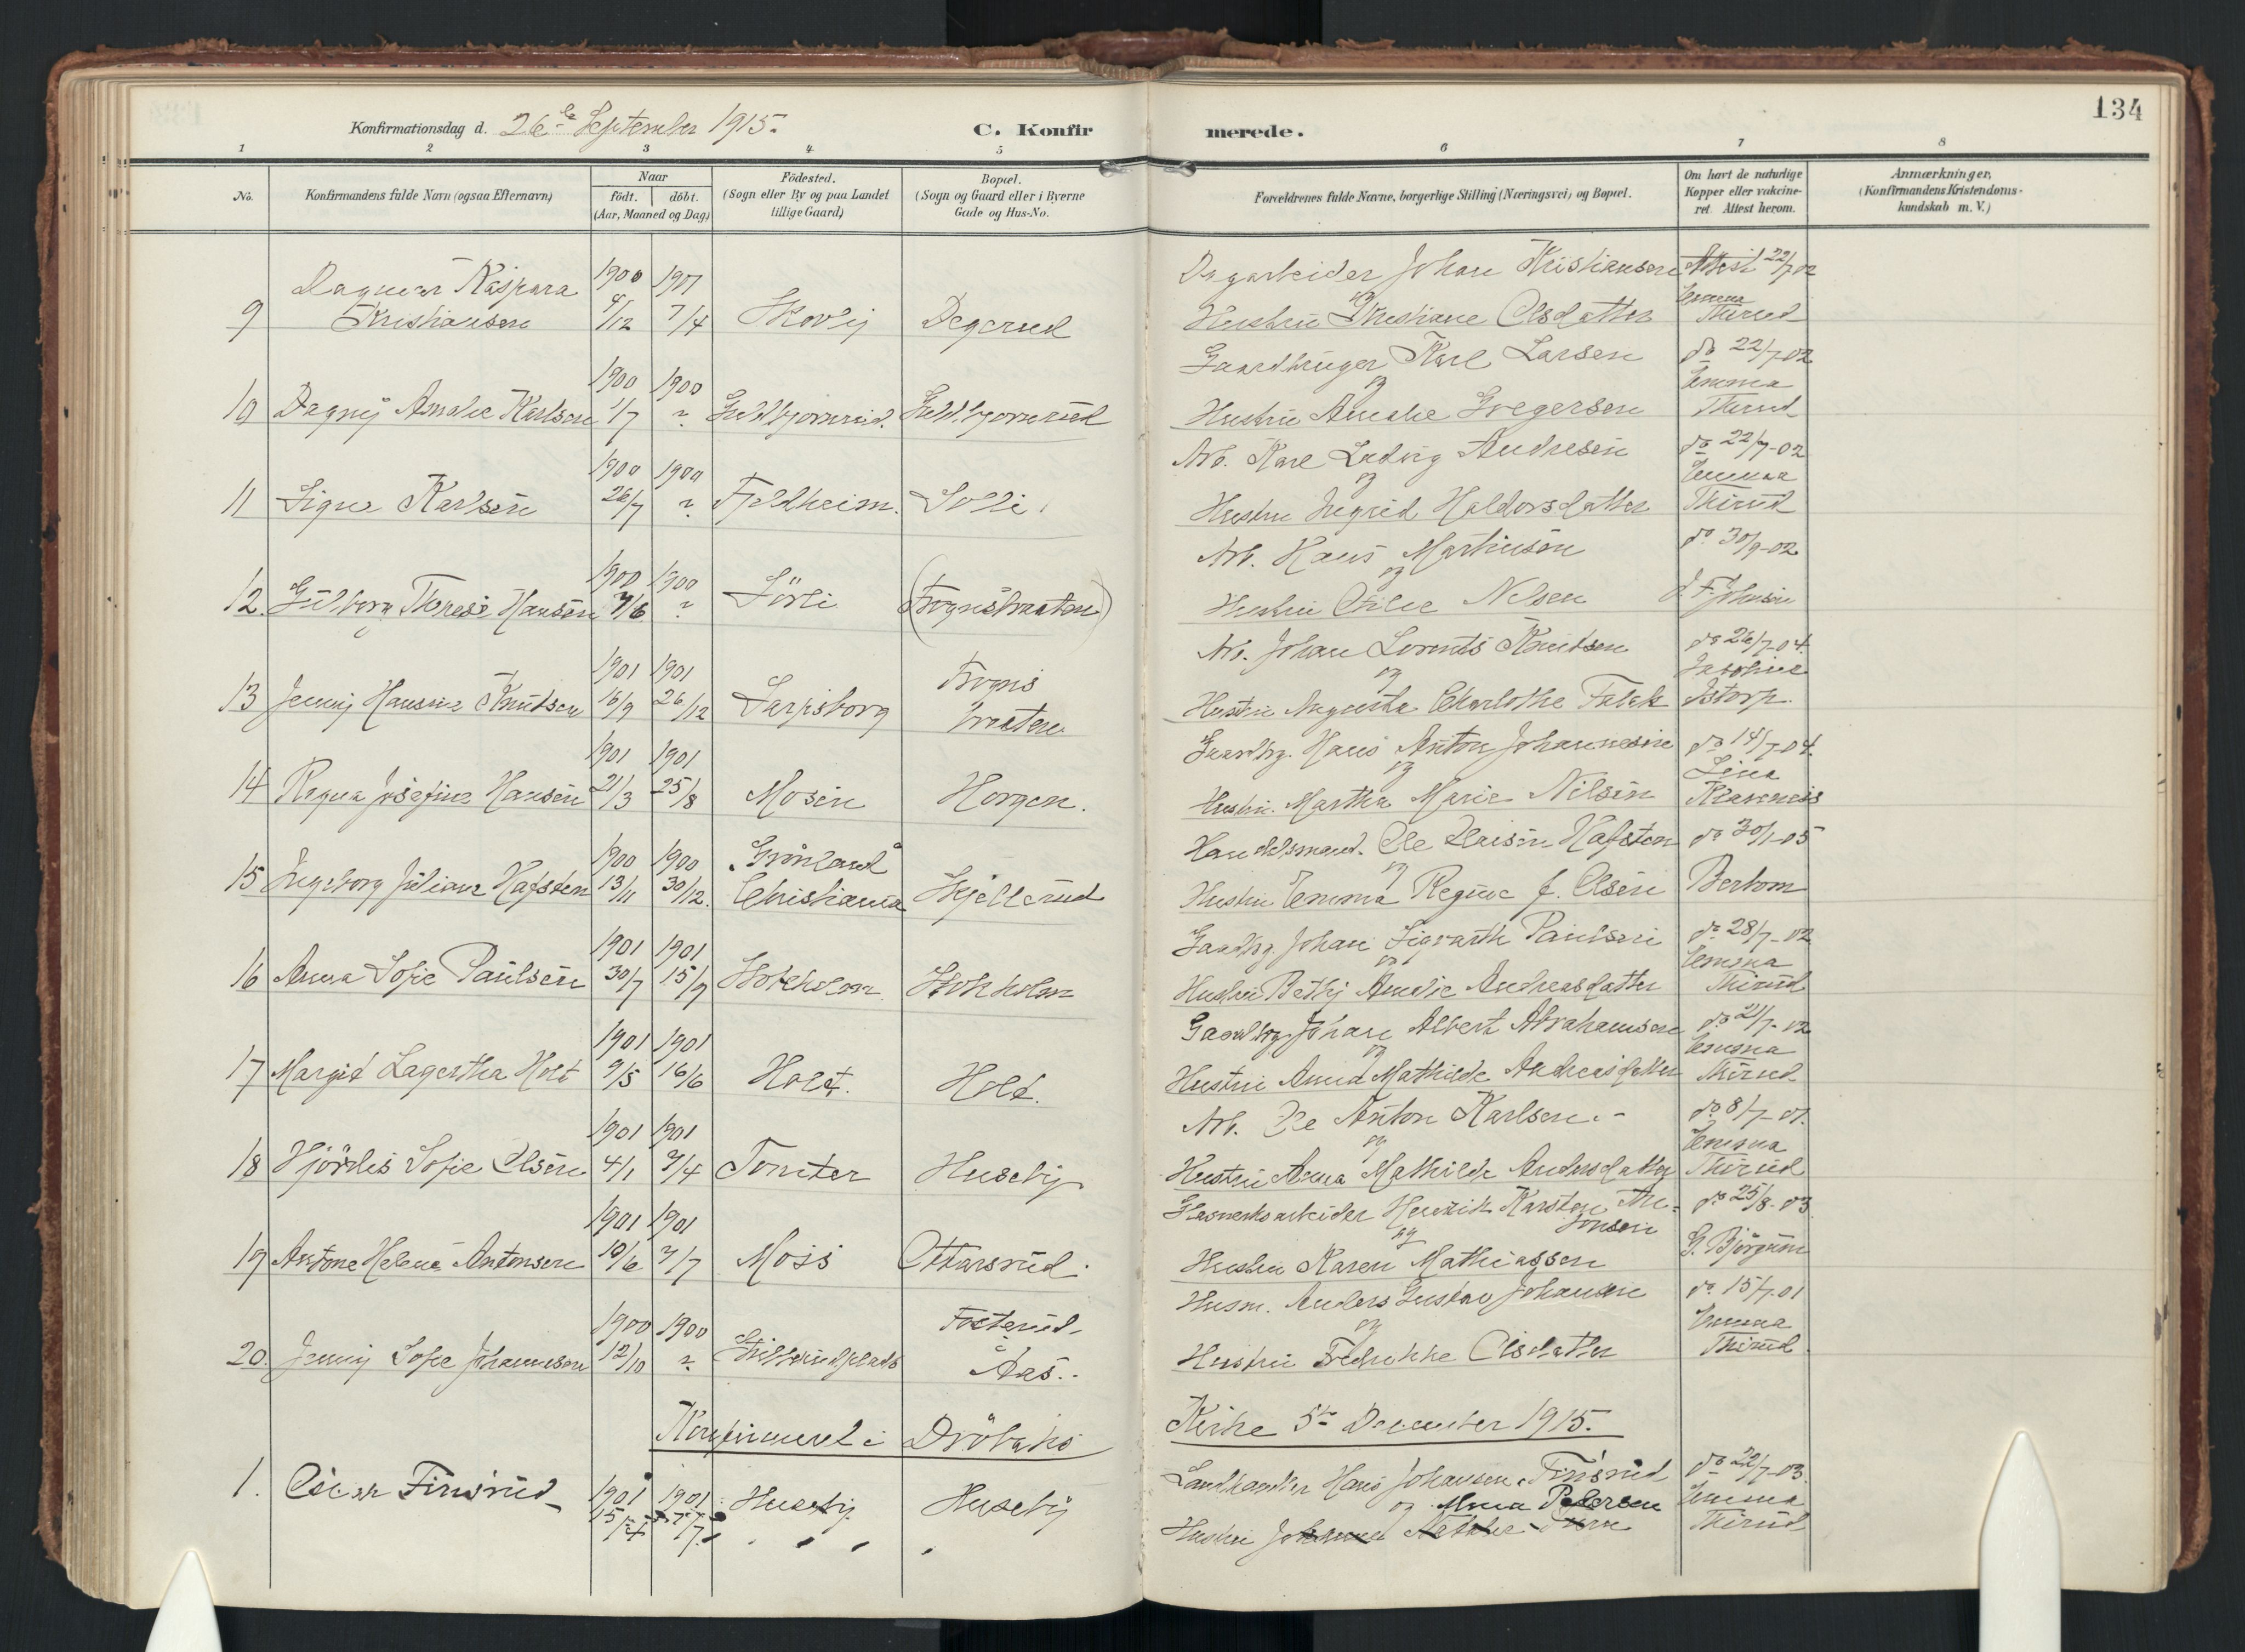 134
Konfirmationsdag d. 26de September 1915.
C. Konfirmerede.
1 2 3 4 5 6 7 8
No.
Konfirmandens fulde Navn (ogsaa Efternavn)
Naar
födt. döbt.
(Aar, Maaned og Dag)
Födested.
(Sogn eller By og paa Landet
tillige Gaard)
Bopæl.
(Sogn og Gaard eller i Byerne
Gade og Hus-No.
Forældrenes fulde Navne, borgerlige Stilling (Næringsvei) og Bopæl.
Om havt de naturlige
Kopper eller vakcine-
ret. Attest herom.
Anmærkninger,
(Konfirmandens Kristendoms-
kundskab m. V.)
Dagmar Kaspara 1900 1901 Dagarbeider Johan Kristiansen Attest 22/7 02
9 Kristiansen /12 7/4 Skovly Degerud og Hustru Kristiane Olsdatter Emma Thirud
1900 1900 Gaardbruger Karl Larsen do 22/7-02
10 Dagny Amalie Karlsen 1/7 ? og Hustru Amalie Gregersen Emma Thirud
1900 1900 Arb. Karl Ludvig Andresen do 22/7-02
11 Signe Karlsen 26/7 ? Fjeldheim. Solli. og Hustru Ingrid Haldorsdatter Emma Thirud
1900 1900 Arb. Hans Martinsen do 30/9-02
12. Gulborg Therese Hansen 7/6 ? Sörli (Frognsbraaten) og Hustru Nilsen J. F. Johnsen
1901 1901 Arb. Johan Lorents Knutsen do 26/7-04.
13 Jenny Hansine Knutsen 16/9 26/12 Sarpsborg Frogns braaten og Hustru Augusta Charlothe Falck Istorp.
1901 1901 Gaardbrg. Hans Anton Johannesen do 14/7-04.
14 Ragna Josefine Hansen 21/3 25/8 Mosen Horgen. og Hustru Martha Marie Nilsen Lina
1900 1900 "Grönland" Handelsmand Ole Hafsten do 30/1-05
15 Ingeborg Juliane Hafsten 13/11 30/12. Christiania Skjellerud og Hustru Emma Regine f. Olsen Berbom
1901 1901 Gaardbrg. Johan Sigvarth Paulsen do 28/7-02
16 Anna Sofie Paulsen 30/7 15/9 Stokholm Stokholm og Hustru Bethy Amalie Andreasdatter Emma Thirud
1901 1901 Gaardbrg. Johan Albert Abrahamsen do 21/7-02
17 Margit Lagertha Holt 9/5 16/6 Holt. Holt. og Hustru Anna Mathilde Andreasdatter Emma Thirud
1901 1901 Arb. Ole Anton Karlsen. do 8/7-01.
18 Hjördis Sofie Olsen 4/1 7/4 Tomter Huseby og Hustru Anna Mathilde Andersdatter Emma Thirud
1901 1901 Henrik Karsten An- do 25/8-03.
tonsen
19 Antone Helene Antonsen 10/6 7/7 Moss Ottarsrud. og Hustru Karen Mathiassen G. Björgum
1900 1900 Husm. Anders Gustav Johansen do 15/7-01
20. Jenny Sofie Johannesen 12/10 ? Fosterud- Aas. og Hustru Fredrikke Olsdatter Emma Thirud
Konfirmeret i Dröbaks Kirke 5te December 1915.
1. Oscar Finsrud 1901 1901 Huseby Huseby Landhandler Hans Johansen Finsrud do 22/7-03.
15/4 /7. og Hustru Petersen Emma Thirud